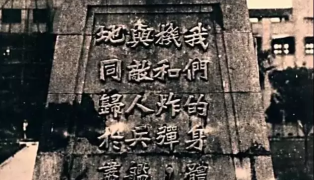 我們的身體
機和炸彈
與敵人兵艦
地同歸於盡